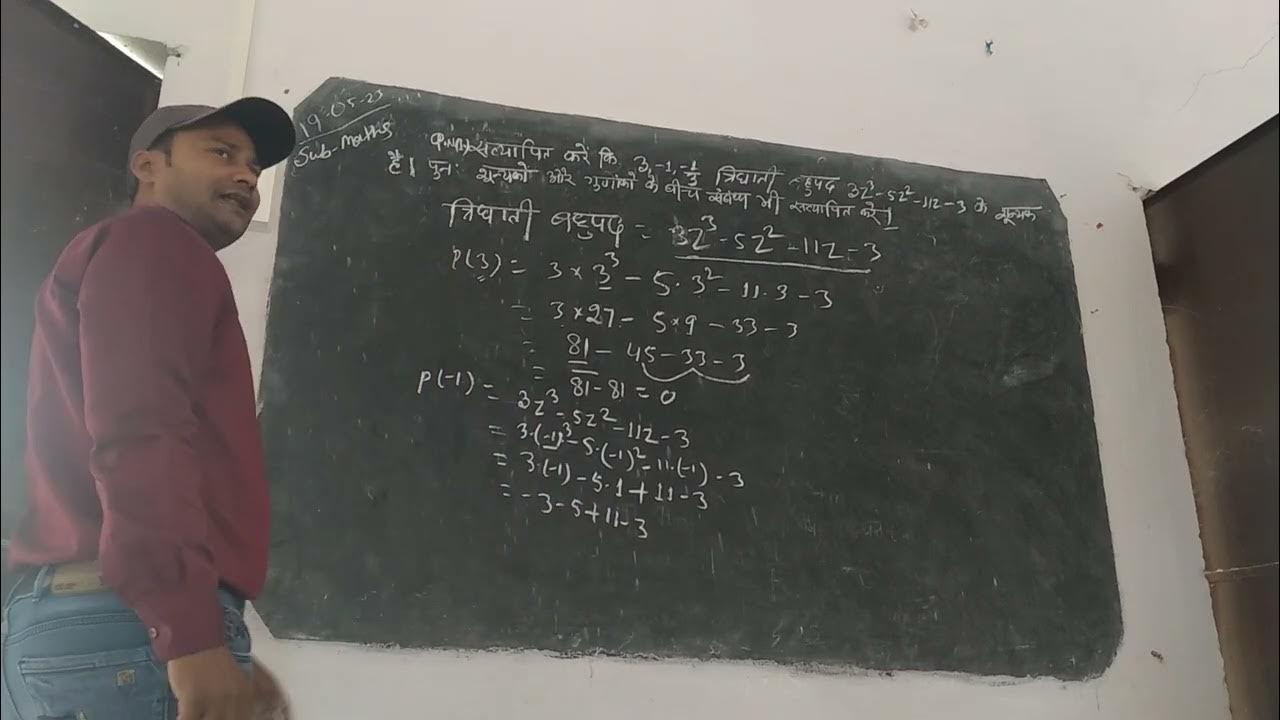 19-05-23
Sub-Maths
सत्यापित करें कि 3, -1, -1/3 त्रिघाती बहुपद 3z³-5z²-11z-3 के शून्यक
है। पुनः शून्यको और गुणांको के बीच संबंध भी सत्यापित करें।
त्रिघाती बहुपद = 3z³-5z²-11z-3
p(3) = 3×3³-5·3²-11·3-3
= 3×27-5×9-33-3
= 81-45-33-3
= 81-81=0
p(-1) = 3z³-5z²-11z-3
= 3·(-1)³-5·(-1)²-11·(-1)-3
= 3·(-1)-5·1+11-3
= -3-5+11-3